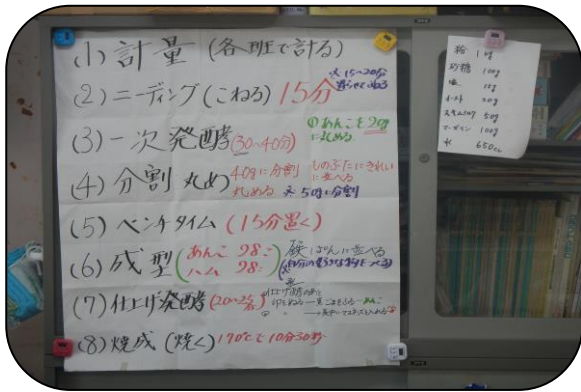 (1) 計量 (各班で計る)
(2) ニーディング (こねる) 15分
※15~20分
(3) 一次発酵 (30~40分)
のあんこを20g
に丸める
(4) 分割 丸め 40gに分割
丸める ※50gに分割
ものぶたにきれい
に並べる
(5) ベンチタイム (15分置く)
(6) 成型 (あんこ 28こ
ハム 28こ
鉄ぱんに並べる
(7) 仕上げ発酵 (20~25分)
(8) 焼成 (焼く) 170℃で10分30秒
粉 1kg
砂糖 100g
塩 15g
イースト 20g
スキムミルク 50g
マーガリン 100g
水 650cc